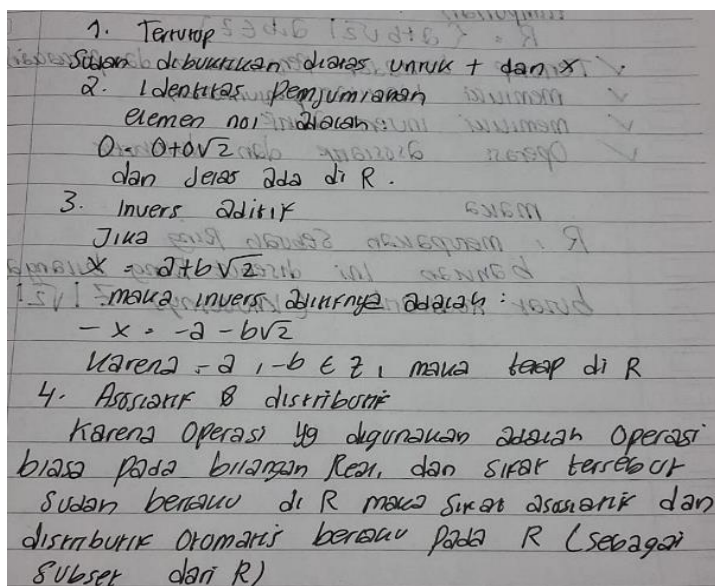 1. Tertutup
Sudah dibuktikan diatas untuk + dan x.
2. Identitas Penjumlahan
elemen nol adalah:
0 = 0+0√2
dan Jelas ada di R.
3. Invers aditif
Jika
x = a+b√2
maka invers aditifnya adalah :
-x = -a - b√2
Karena -a, -b ∈ Z, maka tetap di R
4. Asosiatif & distributif
Karena Operasi yg digunakan adalah Operasi
biasa pada bilangan Real, dan sifat tersebut
Sudah berlaku di R maka Sifat asosiatif dan
distributif Otomatis berlaku Pada R (sebagai
Subset dari R)